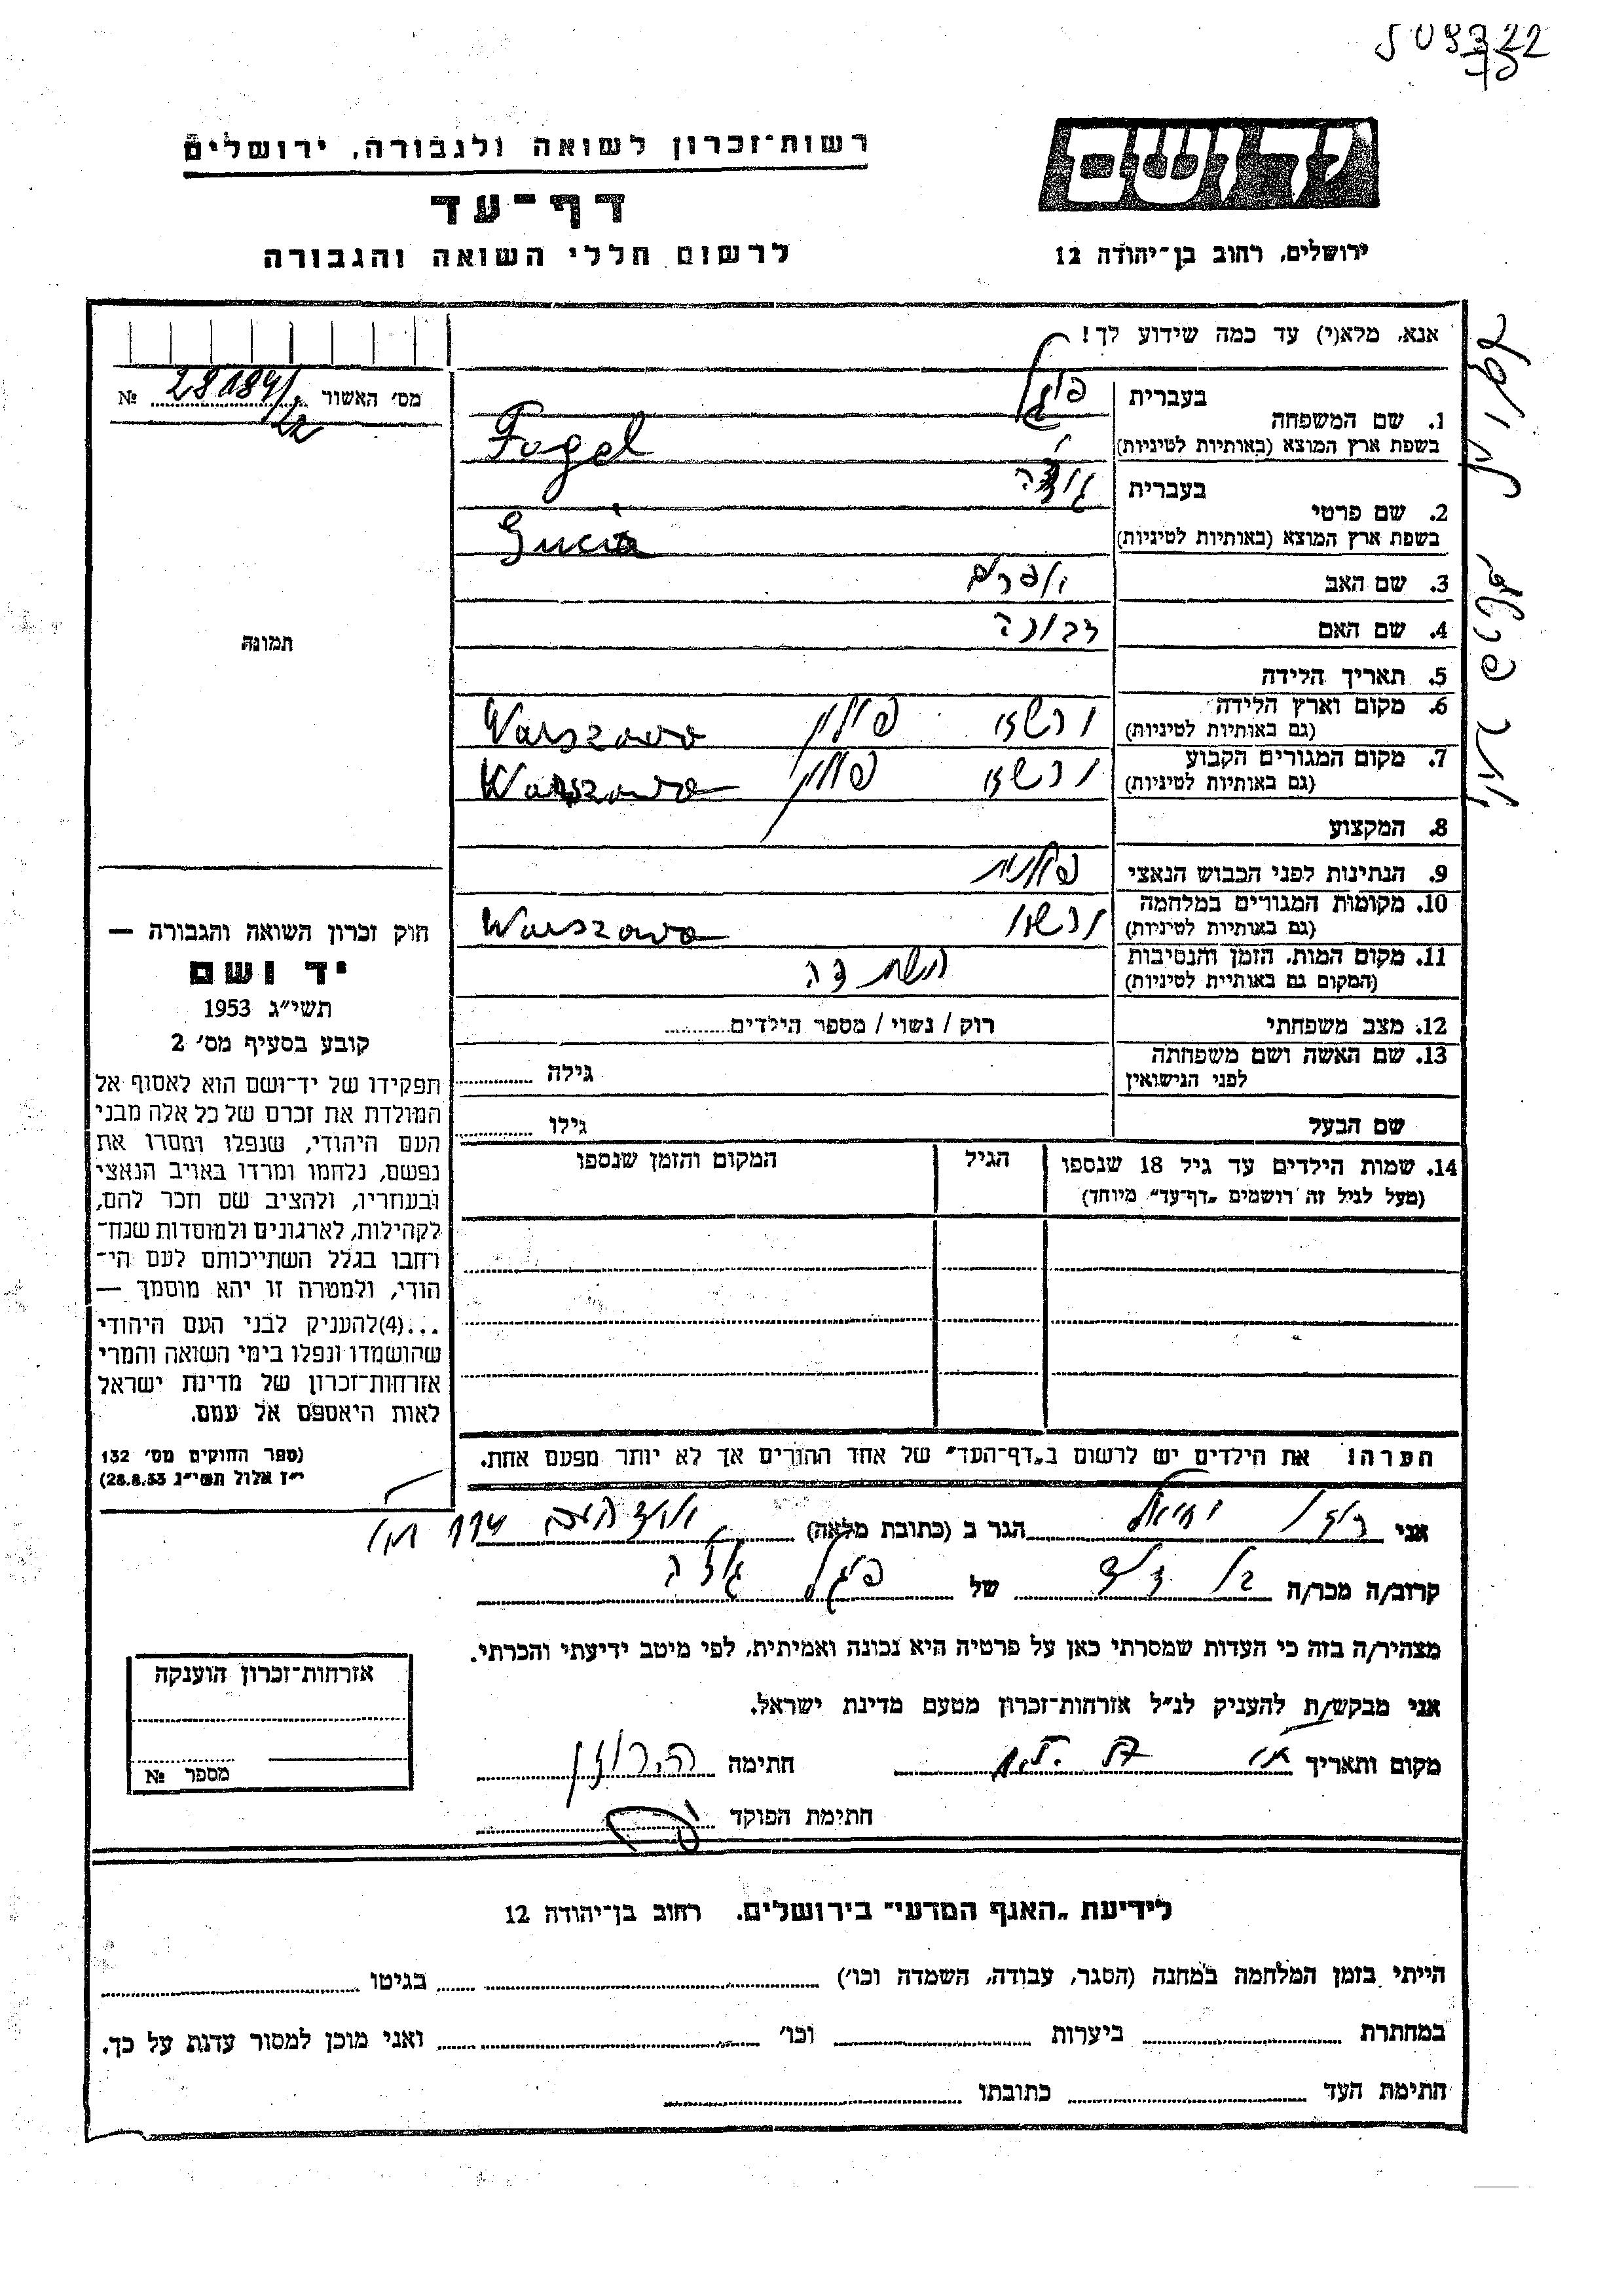 509322
יד ושם
רשות־זכרון לשואה ולגבורה, ירושלים
דף־עד
לרשום חללי השואה והגבורה
ירושלים, רחוב בן־יהודה 12
אנא, מלא(י) עד כמה שידוע לך!
מס׳ האשור № 28184/22
1. שם המשפחה
בעברית פוגל
בשפת ארץ המוצא (באותיות לטיניות) Fogel
2. שם פרטי
בעברית
בשפת ארץ המוצא (באותיות לטיניות) Gucia
3. שם האב אפרים
4. שם האם דבורה
5. תאריך הלידה
6. מקום וארץ הלידה
(גם באותיות לטיניות) ורשו פולין Warszawa
7. מקום המגורים הקבוע
(גם באותיות לטיניות) ורשו פולין Warszawa
8. המקצוע
9. הנתינות לפני הכבוש הנאצי פולנית
10. מקומות המגורים במלחמה
(גם באותיות לטיניות) ורשו Warszawa
11. מקום המות, הזמן והנסיבות
(המקום גם באותיית לטיניות)
12. מצב משפחתי רוק / נשוי / מספר הילדים
13. שם האשה ושם משפחתה
לפני הנישואין
גילה
שם הבעל גילו
14. שמות הילדים עד גיל 18 שנספו
(מעל לגיל זה רושמים „דף־עד״ מיוחד)
הגיל
המקום והזמן שנספו
תמונה
חוק זכרון השואה והגבורה —
יד ושם
תשי״ג 1953
קובע בסעיף מס׳ 2
תפקידו של יד־ושם הוא לאסוף אל
המולדת את זכרם של כל אלה מבני
העם היהודי, שנפלו ומסרו את
נפשם, נלחמו ומרדו באויב הנאצי
ובעוזריו, ולהציב שם וזכר להם,
לקהילות, לארגונים ולמוסדות שנח־
רחבו בגלל השתייכותם לעם הי־
הודי, ולמטרה זו יהא מוסמך —
...(4)להעניק לבני העם היהודי
שהושמדו ונפלו בימי השואה והמרי
אזרחות־זכרון של מדינת ישראל
לאות היאספם אל עמם.
(ספר החוקים מס׳ 132
י״ז אלול תשי״ג 28.8.53)
הערה! את הילדים יש לרשום ב„דף־העד״ של אחד ההורים אך לא יותר מפעם אחת.
אני רוזן הגר ב (כתובת מלאה)
קרוב/ה מכר/ה בן דוד של פוגל
מצהיר/ה בזה כי העדות שמסרתי כאן על פרטיה היא נכונה ואמיתית, לפי מיטב ידיעתי והכרתי.
אני מבקש/ת להעניק לנ״ל אזרחות־זכרון מטעם מדינת ישראל.
מקום ותאריך חתימה
חתימת הפוקד
אזרחות־זכרון הוענקה
מספר №
לידיעת „האגף המדעי״ בירושלים. רחוב בן־יהודה 12
הייתי בזמן המלחמה במחנה (הסגר, עבודה, השמדה וכו׳) בגיטו
במחתרת ביערות וכו׳ ואני מוכן למסור עדות על כך.
חתימת העד כתובתו